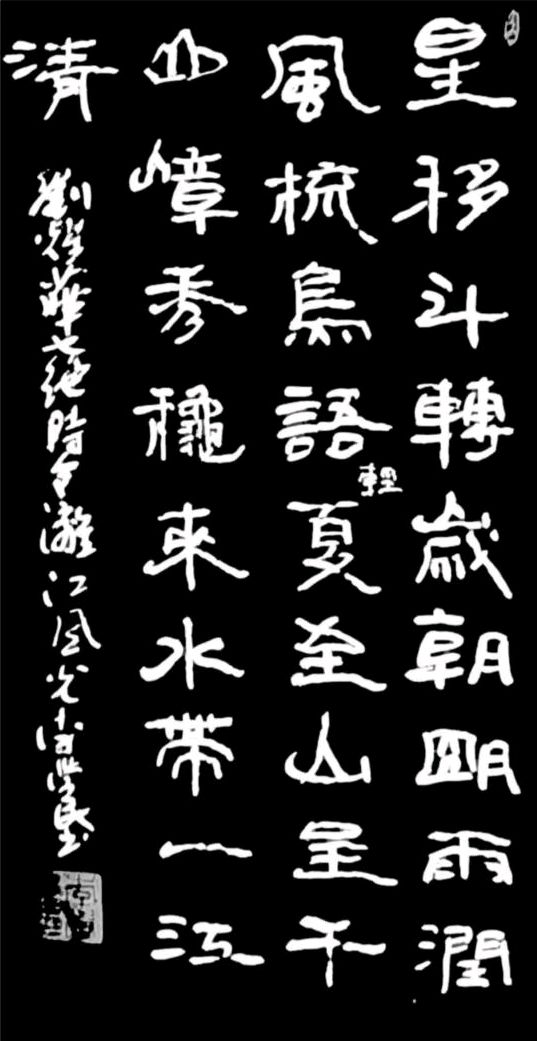 星移斗轉歲朝朙雨潤
風梳鳥語輕夏至山呈千
山嶂秀穐來水帶一江
清
劉耀華七絕時令灕江風光